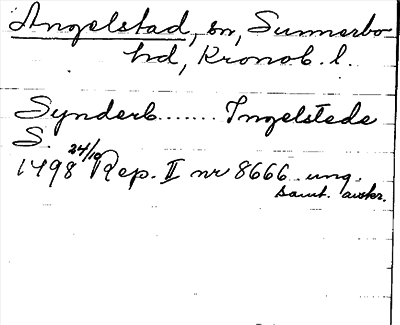 Angelstad, sn, Sunnerbo
hd, Kronob. l.
Synderb....... Ingelstede
S.
1498 24/10 Rep. II nr 8666 ung.
samt. avskr.